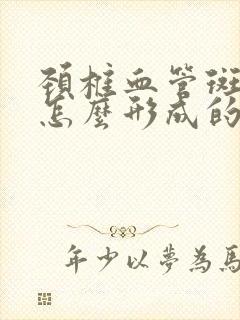 頚椎血管斑
怎麼形成的
年少以夢為馬